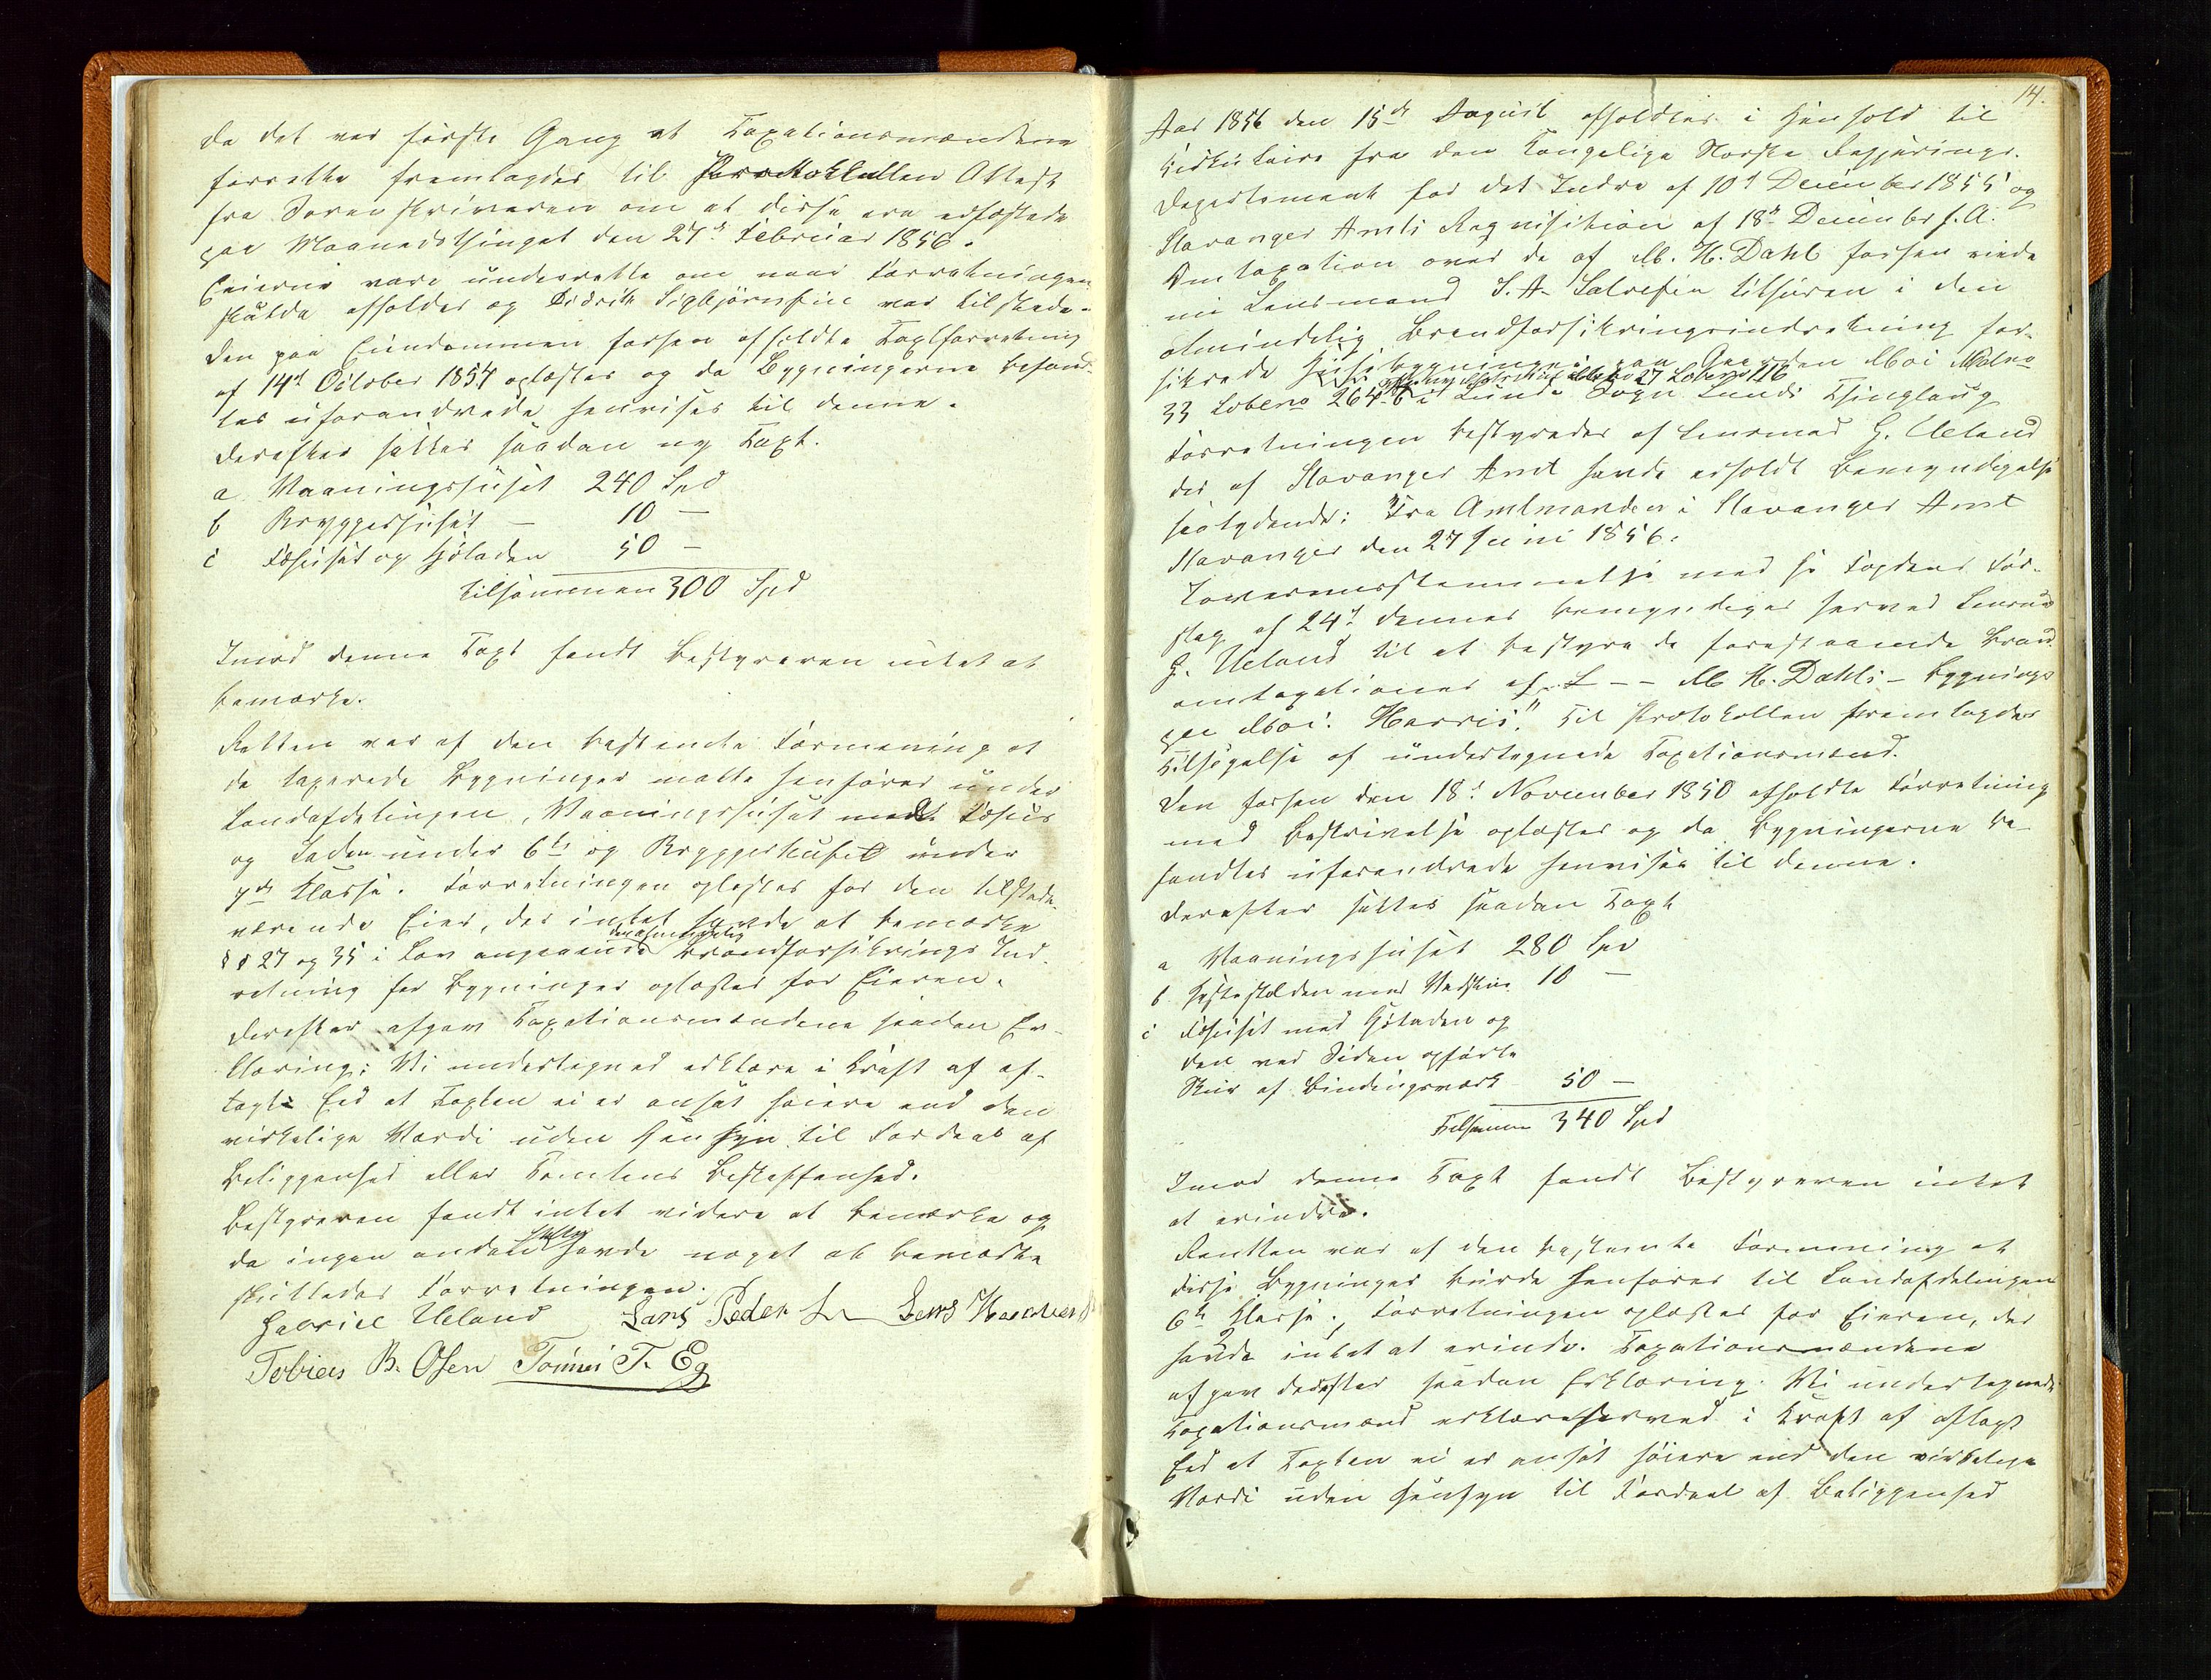 da det var første Gang at Taxationsmændene
forrette fremlagdes til Protokollen Attest
fra Sorenskriveren om at disse ere edfæstede
paa Maanedsthinget den 27de Februar 1856.
Eierne vare underrette om naar Forretningen
skulde afholdes og Didrik Sigbjørnsen var tilstede.
Den paa Eiendommen forhen afholdte Taxtforretning
af 14de October 1854 oplæstes og da Bygningerne befand-
tes uforandrede henvises til denne.
Derefter sattes saadan ny Taxt.
a Vaaningshuset 240 Spd
b Bryggerhuset — 10 —
c Fæhuset og Høladen 50 —
tilsammen 300 Spd
Imod denne Taxt fandt Bestyreren intet at
bemærke.
Retten var af den bestemte Formening at
de taxerede Bygninger maatte henføres under
Landafdelingen, Vaaningshuset med Fæhus
og Laden under 6te og Bryggerhuset under
7de Klasse. Forretningen oplæstes for den tilstede-
værende Eier, der intet havde at bemærke
§§ 27 og 35 i Lov angaaende den almindelig Brandforsikrings Ind-
retning for Bygninger oplæstes for Eieren.
Derefter afgav Taxationsmændene saadan Er-
klæring: Vi undertegned erklære i Kraft af af-
lagte Eed at Taxten ei er ansat høiere end den
virkelige Værdi uden Hensyn til Fordeel af
Beliggenhed eller Tomtens Beskaffenhed.
Bestyreren fandt intet videre at bemærke og
da ingen andre heller havde noget at bemærke
sluttedes Forretningen.
Gabriel Ueland Lars Peder Lars
Tobias B. Osen Tønnes T. Eg
14.
Aar 1856 den 15de August afholdtes i Henhold til
Cirkulaire fra den Kongelige Norske Regjerings-
Departement for det Indre af 10de December 1855 og
Stavanger Amts Requisition af 18de December s.A.
Omtaxation over de af M. H. Dahl forhen eiede
nu Lensmand S. A. tilhøren i den
almindelig Brandforsikringsindretning for-
sikrede Huusebygninger paa Gaarden Moi Matrno
27 Lobeno 116
33 Lobeno 264 b i Lunde Sogn Lunds Thinglaug
Forretningen bestyredes af Lensmand G. Ueland
der af Stavanger Amt havde erholdt Bemyndigelse
saalydende: "Fra Amtmanden i Stavanger Amt
Stavanger den 27 Juni 1856.
I Overensstemmelse med Hr Fogdens For-
slag af 24de dennes bemyndiges herved Lensmd
G. Ueland til at bestyre de forestaaende Brand-
omtaxationer af L - - M H. Dahls - Bygninger
paa Moi. Harris." Til Protokollen fremlagdes
Tilsigelse af undertegnede Taxationsmænd.
Den forhen den 18de November 1850 afholdte Forretning
med Beskrivelse oplæstes og da Bygningerne be-
fandtes uforandrede henvises til denne.
Derefter sattes saadan Taxt
a Vaaningshuset 280 Spd
b Hestestalden med Vedskur 10 —
c Fæhuset med Høladen og
den ved Siden opførte
Skur af Bindingsværk 50 —
Tilsammen 340 Spd
Imod denne Taxt fandt Bestyreren intet
at erindre.
Retten var af den bestemte Formening at
disse Bygninger burde henføres til Landafdelingen
6te Klasse. Forretningen oplæstes for Eieren, der
havde intet at erindre. Taxationsmændene
afgav derefter saadan Erklæring: Vi undertegnede
Taxationsmænd erklære herved i Kraft af aflagt
Eed at Taxten ei er ansat høiere end den virkelige
Værdi uden Hensyn til Fordeel af Beliggenhed